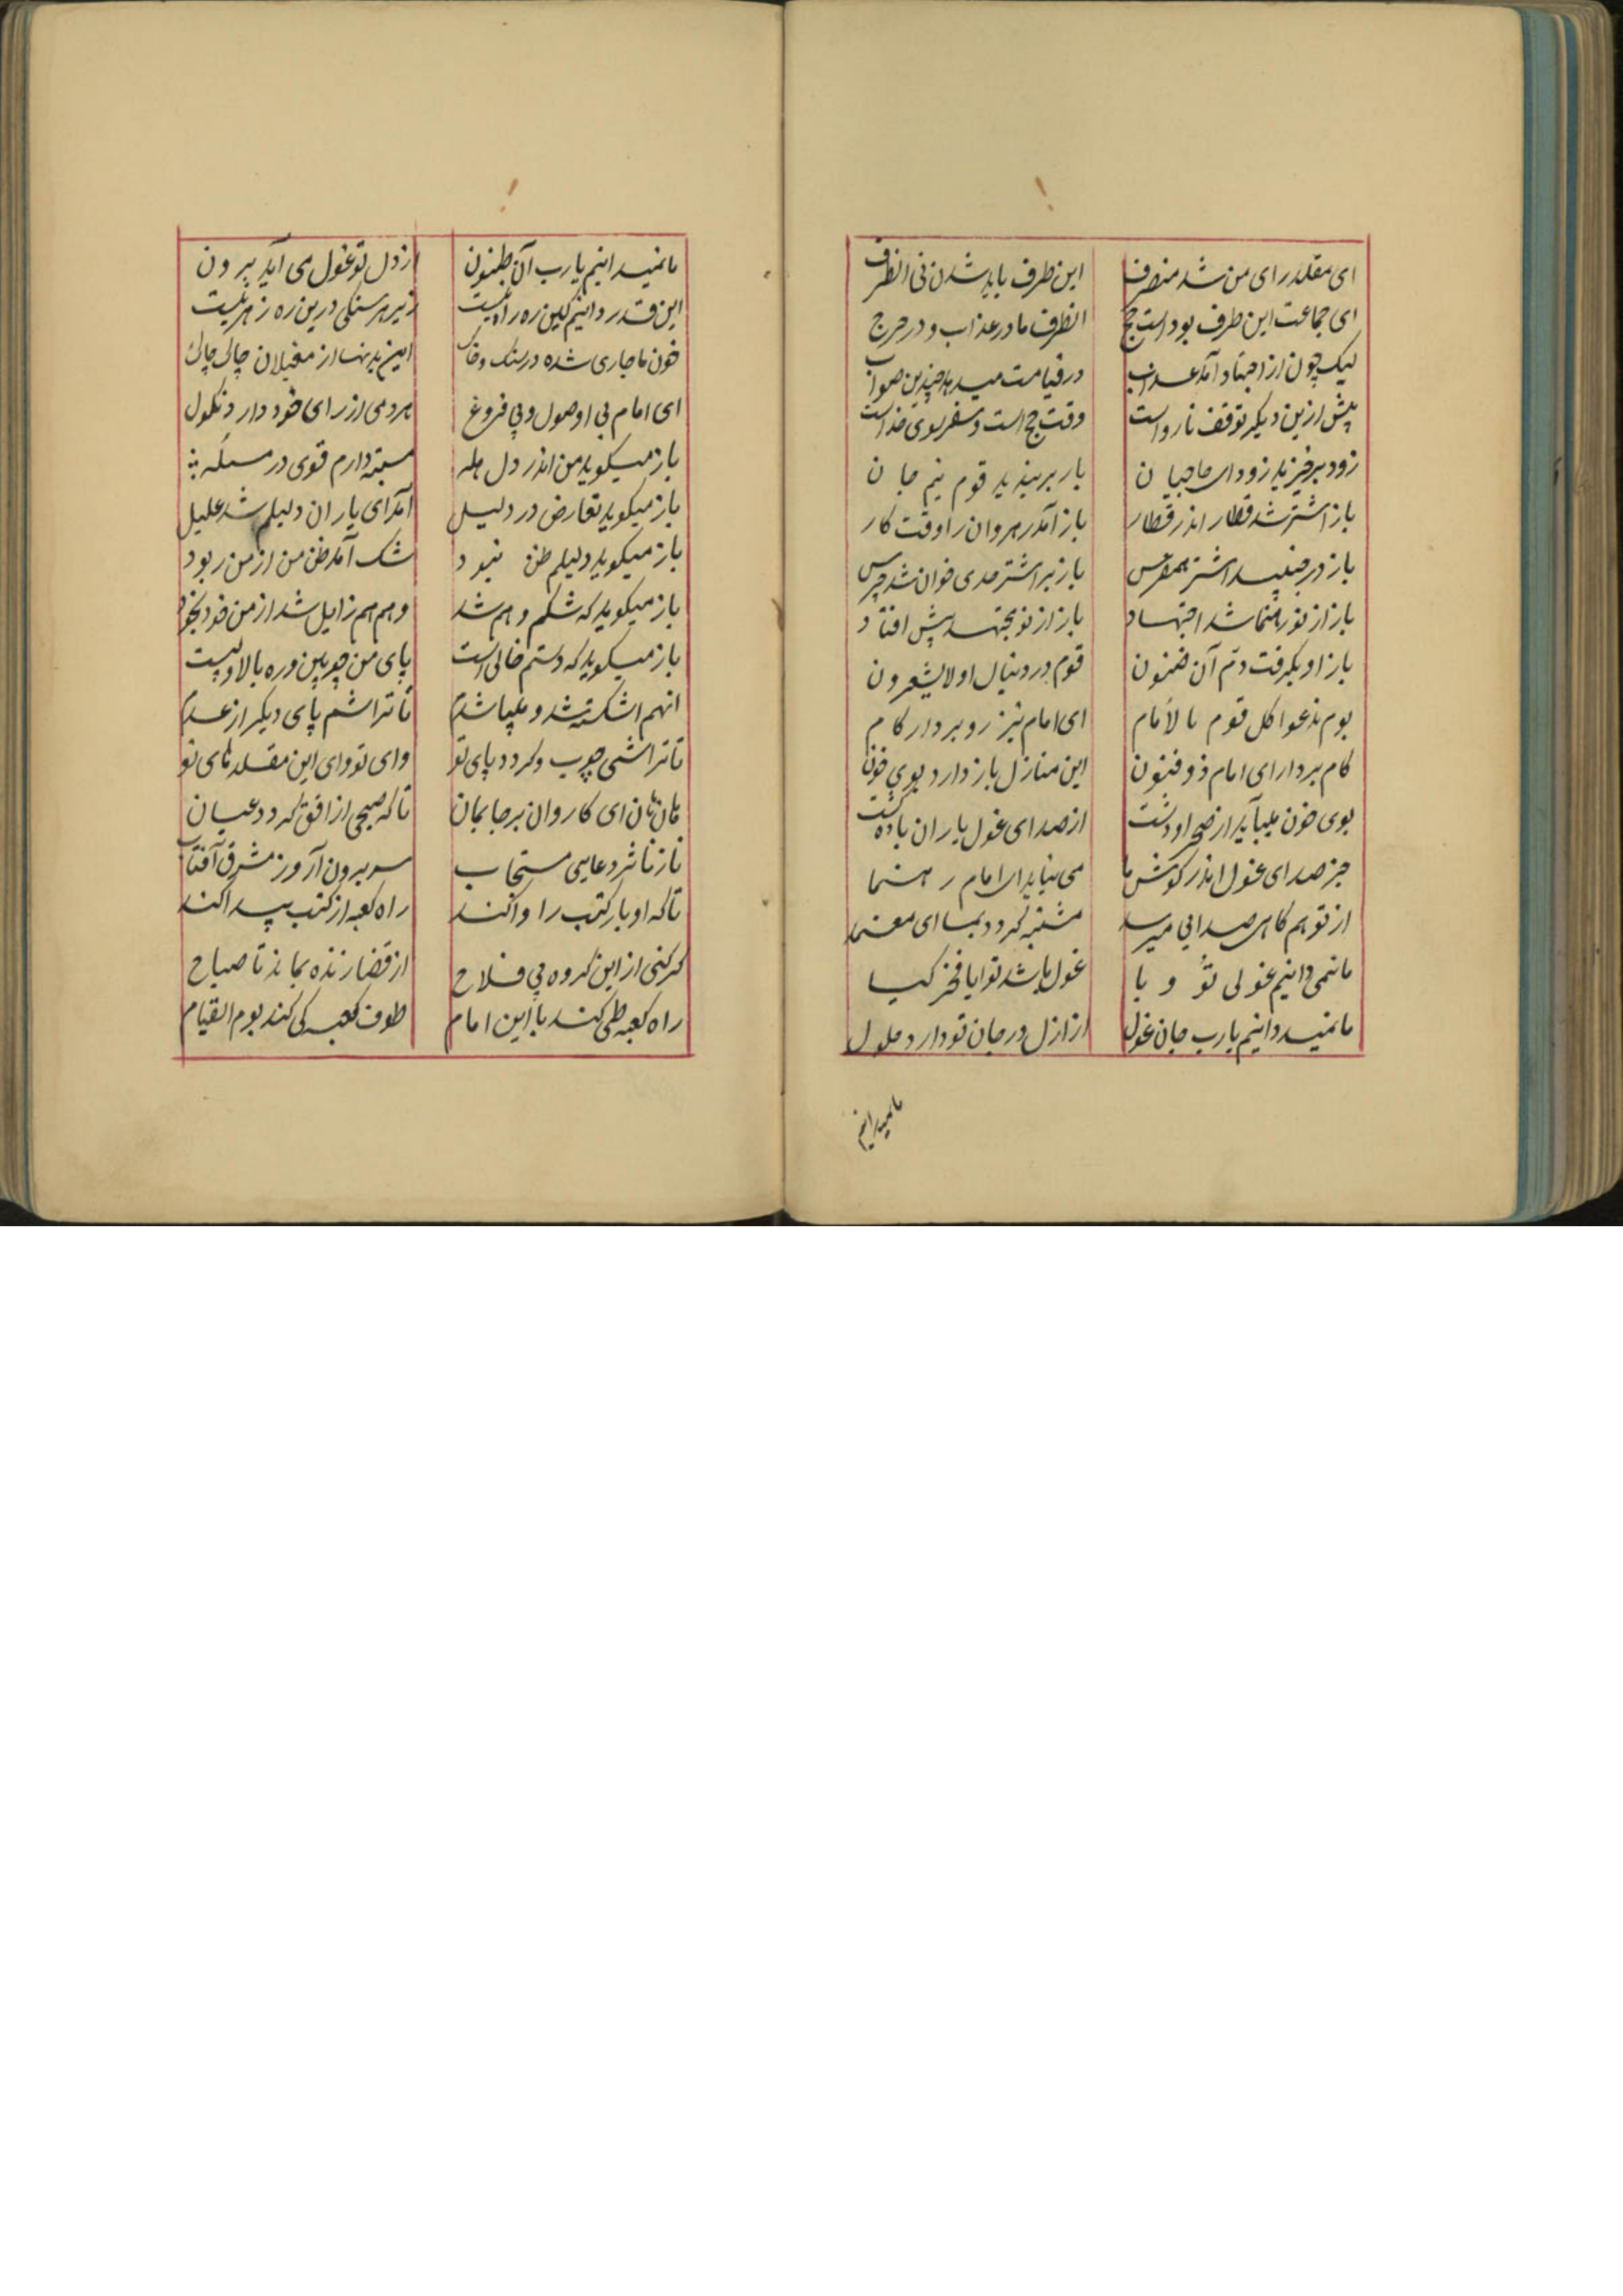 ای مقلد رای من شد منصرف
این طرف باید شدن نی انطرف
ای جماعت این طرف بود است حج
انطرف ما در عذاب و در حرج
لیک چون از اجتهاد آمد عذاب
در قیامت میدهد چندین صواب
پیش ازین دیگر توقف نارواست
وقت حج است و سفر سوی خداست
زود برخیزید زود ای حاجیان
بار بربندید قوم نیم جان
باز اشتر شد قطار اندر قطار
باز آمد رهروان را وقت کار
باز در جنبید اشتر
باز بر اشتر حدی خوان شد جرس
باز از نو رهنما شد اجتهاد
باز از نو مجتهد پیش افتاد
باز او بگرفت دم آن فنون
قوم در دنبال او لایشعرون
یوم ندعوا کل قوم بالامام
ای امام تیز رو بردار کام
کام بردار ای امام ذوفنون
این منازل باز دارد بوی خون
بوی خون میآید از صحرا و دشت
از صدای غول یاران باده گشت
جز صدای غول اندر گوش ما
می نیاید ای امام رهنما
از تو هم گاهی صدایی میرسد
مشتبه گردد بما ای معتمد
ما نمی دانیم غولی تو و یا
غول باشد تو ایا فخر کیا
ما نمیدانیم یارب جان غول
از ازل در جان تو دارد حلول
مانمیدانیم
ما نمیدانیم یارب آن بطنون
از دل تو غول می آید برون
این قدر دانیم کین ره راه نیست
زیر هر سنگی درین ره زهریست
خون ما جاری شده در سنگ و خاک
این بدنها از مغیلان چاک چاک
ای امام بی اوصول و بی فروغ
هر دمی از رای خود دارد نکول
باز میگوید من اندر دل هله
مستندارم قوی در مسئله
باز میگوید تعارض در دلیل
آمد ای یاران دلیلم شد علیل
باز میگوید دلیلم ظن نبود
شک آمد ظن من از من ربود
باز میگوید که شکم وهم شد
وهم هم زایل شد از من خود بخود
باز میگوید که دستم خالی است
پای من چوبین و ره بالا و پست
انهم اشکسته شد و بیپا شدم
تا تراشم پای دیگر از عدم
تا تراشی چوب و گردد پای تو
وای تو وای این مقلدهای تو
هان هان ای کاروان بر جا بمان
تا که صبحی از افق گردد عیان
تا ز تاثر دعایی مستجاب
سر برون آرد ز مشرق آفتاب
تا که او بار کتب را وا کند
راه کعبه از کتب پیدا کند
گر کنی از این گروه بی فلاح
از قضا زنده بماند تا صباح
راه کعبه طی کند با این امام
طوف کعبه کی کند یوم القیام